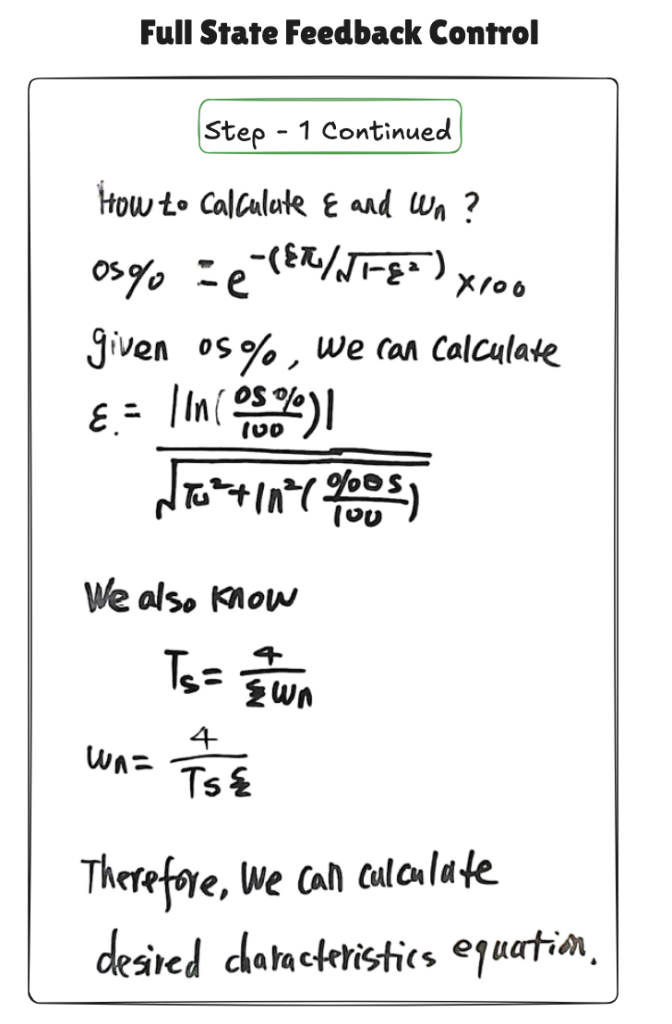 Full State Feedback Control
Step - 1 Continued
How to calculate ξ and ωn ?
OS% = e^-(ξπ/√1-ξ²) ×100
given OS%, we can calculate
ξ = |ln(OS%/100)| / √π²+ln²(%OS/100)
We also know
Ts = 4/ξωn
ωn = 4/Tsξ
Therefore, we can calculate
desired characteristics equation.